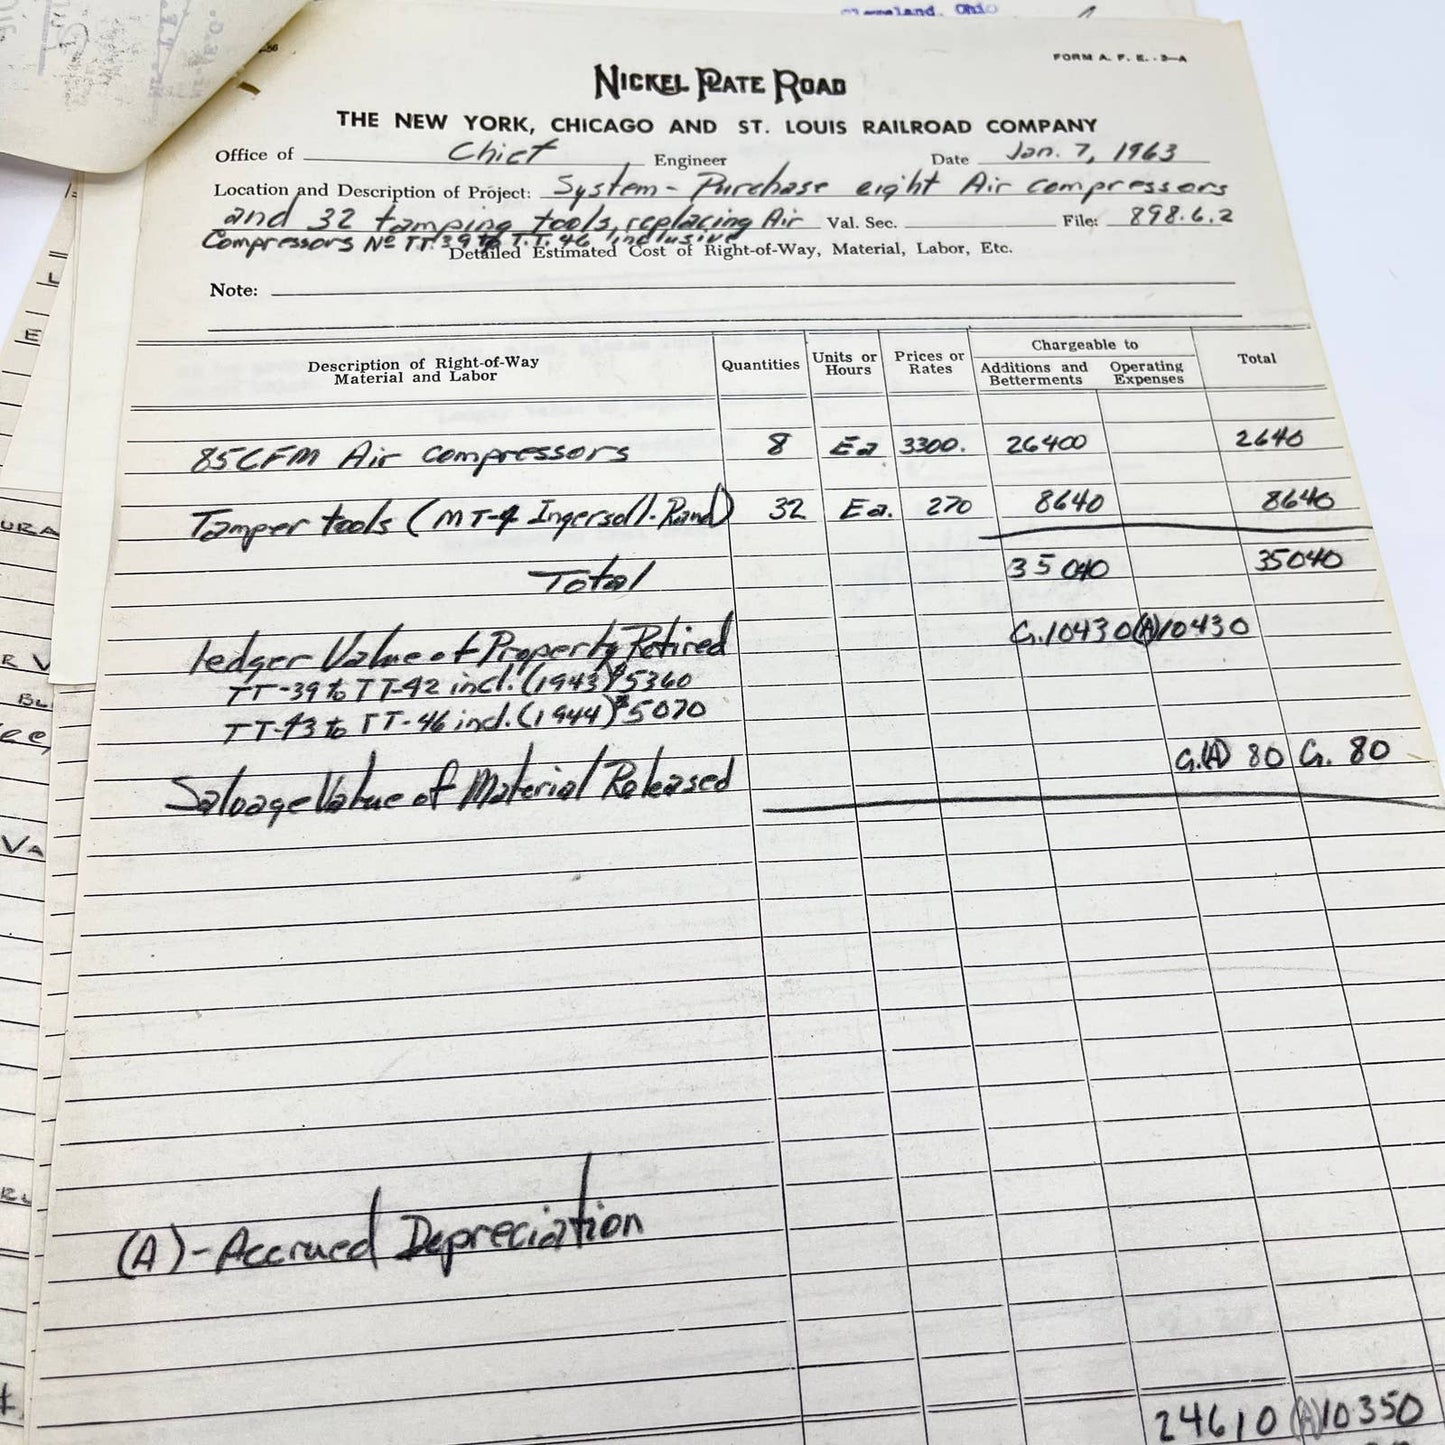 Cleveland, Ohio
FORM A. F. E. - 3-A
NICKEL PLATE ROAD
THE NEW YORK, CHICAGO AND ST. LOUIS RAILROAD COMPANY
Office of Chief Engineer Date Jan. 7, 1963
Location and Description of Project: System - Purchase eight Air compressors
and 32 tamping tools, replacing Air Val. Sec. File: 898.6.2
Compressors No TT.39 to T.T. 46 inclusive
Detailed Estimated Cost of Right-of-Way, Material, Labor, Etc.
Note:
Chargeable to
Description of Right-of-Way Material and Labor Quantities Units or Hours Prices or Rates Additions and Betterments Operating Expenses Total
85 CFM Air compressors 8 Ea 3300. 26400 2640
Tamper tools (MT-4 Ingersoll-Rand) 32 Ea. 270 8640 8640
Total 35040 35040
ledger Value of Property Retired G.10430 (A)10430
TT-39 to TT-42 incl. (1943) $5360
TT-43 to TT-46 incl. (1944) $5070
Salvage Value of Material Released G.(A) 80 G. 80
(A) - Accrued Depreciation
24610 (A)10350